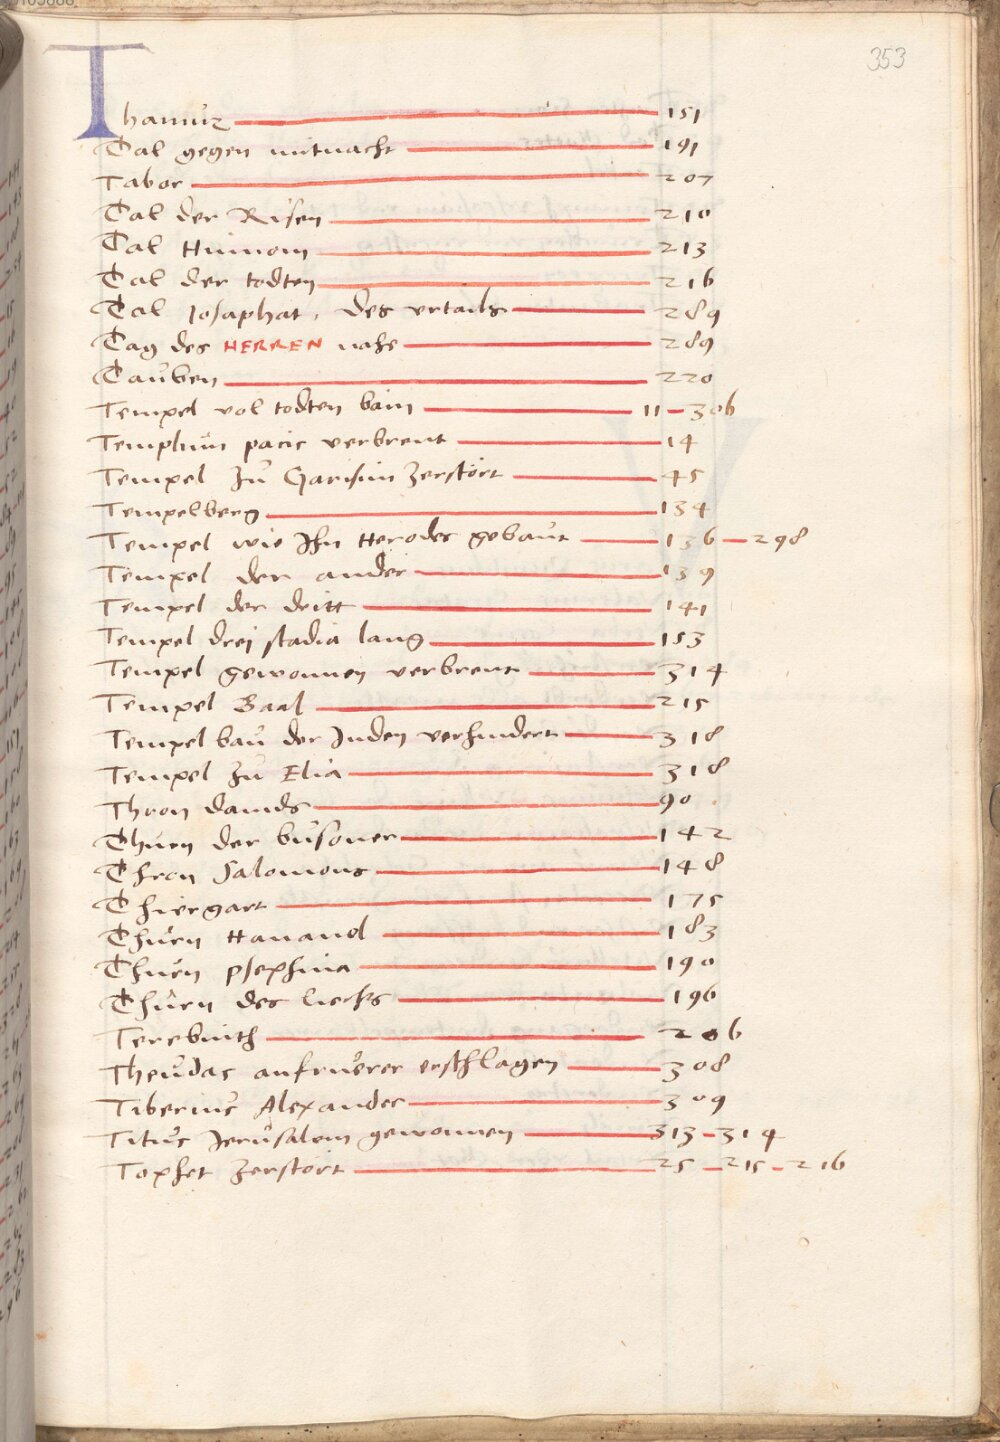 353
Thamuz 151
Tal gegen mitnacht 191
Tabor 207
Tal der Risen 210
Tal Hinnom 213
Tal der todten 216
Tal Iosaphat, des urtails 289
Tag des HERREN nahe 289
Tauben 220
Tempel vol todten bain 11 - 306
Templum pacis verbrent 14
Tempel zu Garisim zerstört 45
Tempelberg 134
Tempel wie Ihn Herodes gebaut 136 - 298
Tempel der ander 139
Tempel der dritt 141
Tempel drei stadia lang 153
Tempel gewonnen verbrent 314
Tempel Baal 215
Tempel bau der Juden verhindert 318
Tempel zu Elia 318
Thron Davids 90
Thurn der busoner 142
Thron Salomons 148
Thiergart 175
Thurn Hananel 183
Thurn Psephina 190
Thurn des liechs 196
Terebinth 206
Theudas aufruerer erschlagen 308
Tiberius Alexander 309
Titus Jerusalem gewonnen 313 - 314
Tophet zerstört 25 - 215 - 216